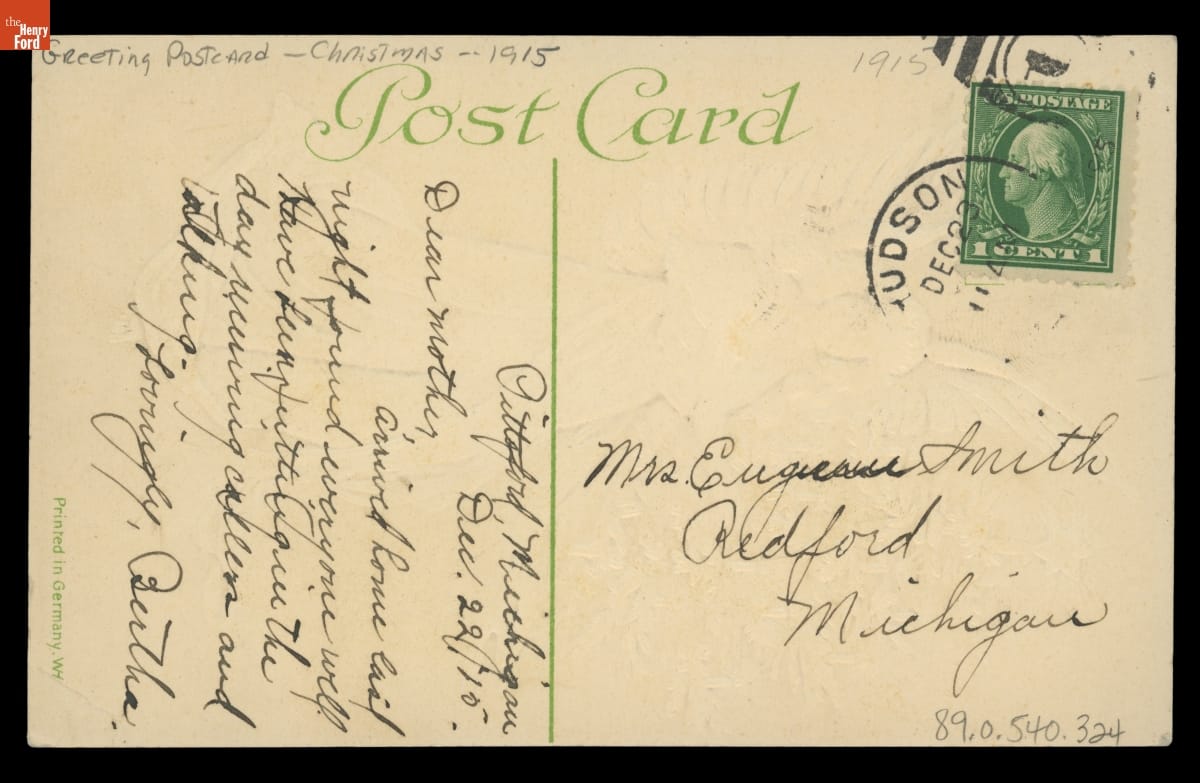 the
Henry
Ford
Greeting Postcard – Christmas -- 1915
1915
Post Card
Pittsford, Michigan
Dec. 22/15.
Dear Mother,
arrived home last
night found everyone well
Have put in the
day and
talking.
Lovingly, Bertha.
Printed in Germany. WH
U.S. POSTAGE
1 CENT 1
UDSON
DEC 23
11 A
Mrs. Eugene Smith
Redford
Michigan
89.0.540.324